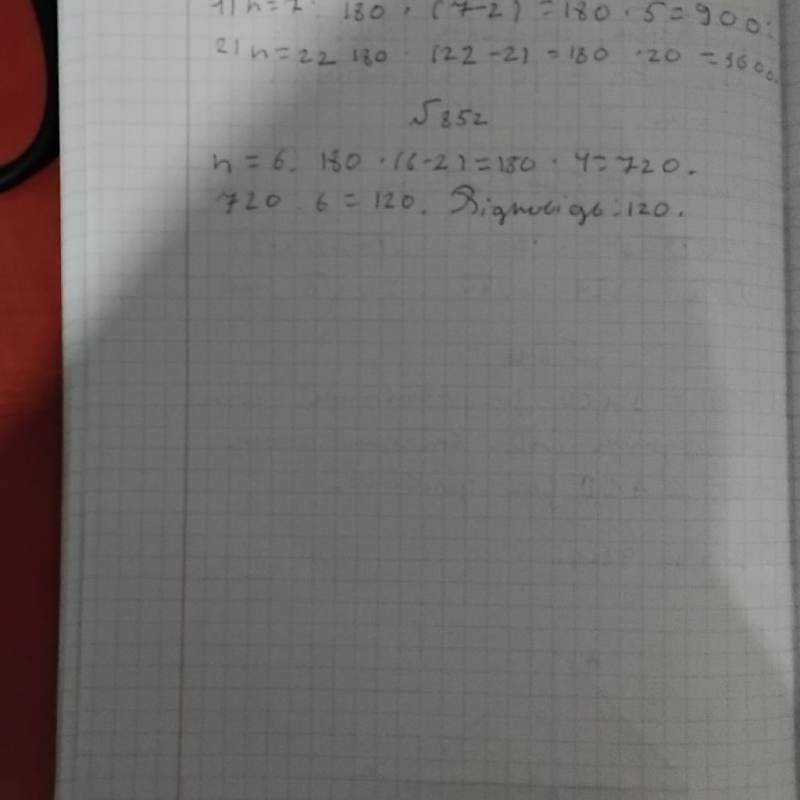 1) n = 7: 180 · (7-2) = 180 · 5 = 900.
2) n = 22 180 · (22-2) = 180 · 20 = 3600.
√ 852
n = 6. 180 · (6-2) = 180 · 4 = 720.
720 6 = 120. Відповідь: 120.